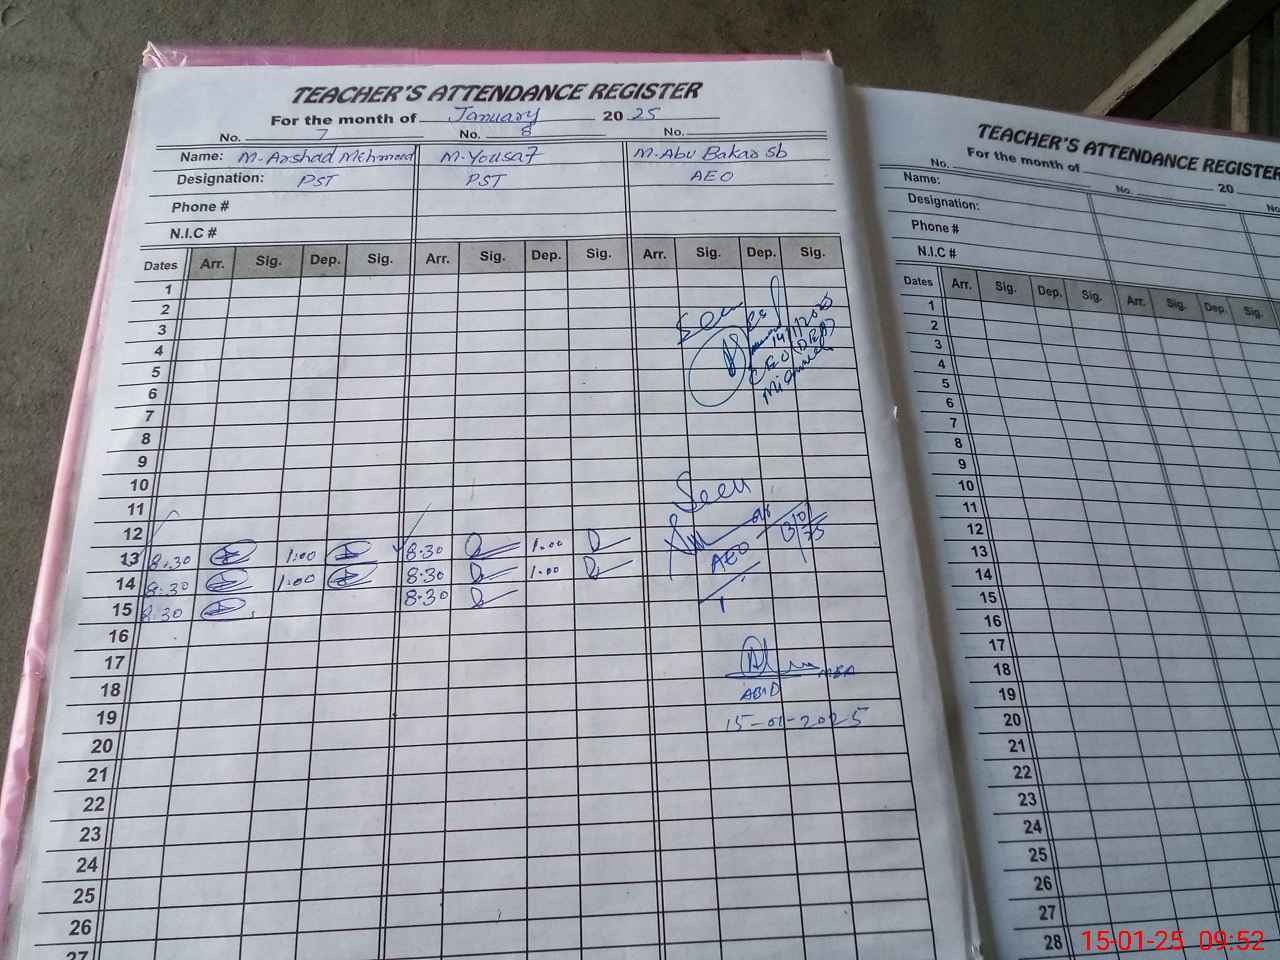 TEACHER'S ATTENDANCE REGISTER
For the month of January 2025
No. 7 No. 8 No.
Name: M-Arshad Mehmood M-Yousaf M-Abu Bakar Sb
Designation: PST PST AEO
Phone #
N.I.C #
Dates Arr. Sig. Dep. Sig. Arr. Sig. Dep. Sig. Arr. Sig. Dep. Sig.
1
2
3
4
5
6
7
8
9
10
11
12
13 8.30 1.00 8.30 1.00
14 8.30 1.00 8.30 1.00
15 8.30 8.30
16
17
18
19
20
21
22
23
24
25
26
27
Seen
14/1/2025
CEO (DEA)
Seen
AEO
15-01-2025
TEACHER'S ATTENDANCE REGISTER
For the month of 20
No. No. No
Name:
Designation:
Phone #
N.I.C #
Dates Arr. Sig. Dep. Sig. Arr. Sig. Dep. Sig.
1
2
3
4
5
6
7
8
9
10
11
12
13
14
15
16
17
18
19
20
21
22
23
24
25
26
27
28
15-01-25 09:52